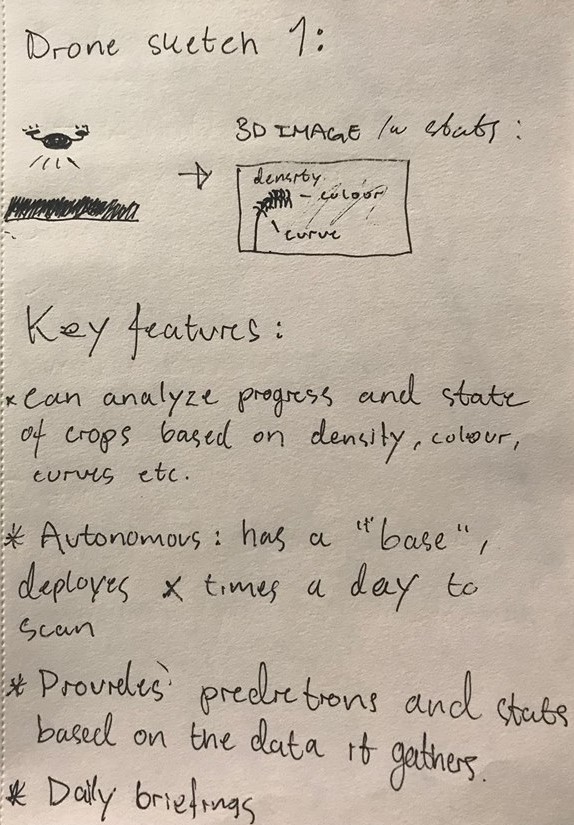 Drone sketch 1:
3D IMAGE /w stats:
density
- colour
curve
Key features:
* can analyze progress and state
of crops based on density, colour,
curves etc.
* Autonomous: has a "base",
deployes x times a day to
scan
* Provides predictions and stats
based on the data it gathers.
* Daily briefings